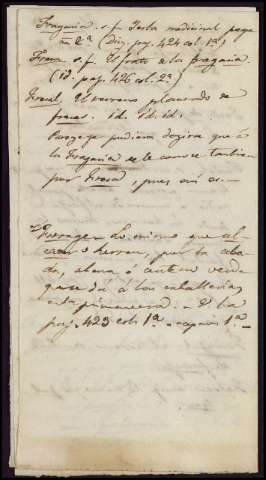 Fragaria. s. f. Yerba medicinal
2ª (Dig. pag. 424 col. 1ª)
Fresa s. f. El fruto de la fragaria.
(Id. pag. 426 col. 2ª)
Fresal. El terreno plantado de
fresas. id. id. id.
pudiera decirse que á
la Fragaria se le conoce tambien
por Fresal, pues así
Forrage - Lo mismo que al-
ó herren, por la ceba-
da, abena ó centeno verde
que se dá á las caballerías
en la primavera. - D. la
pag. 423 col. 1ª - 1ª -